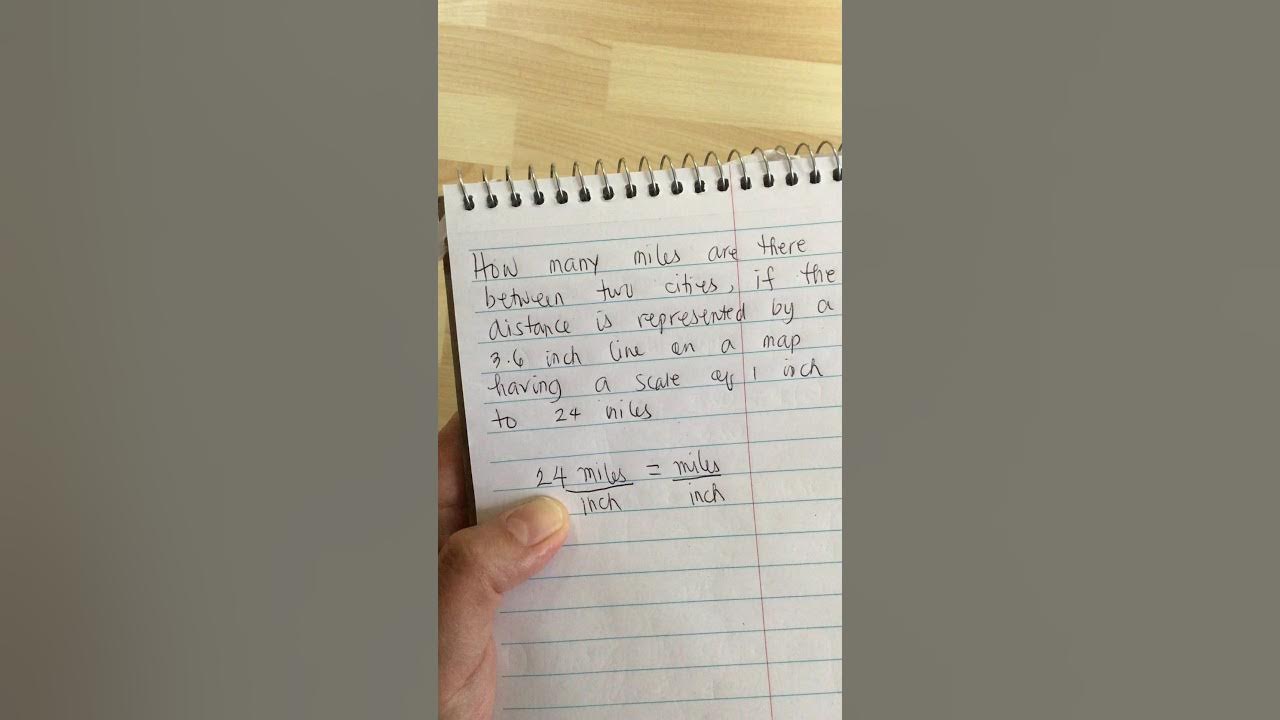 How many miles are there
between two cities, if the
distance is represented by a
3.6 inch line on a map
having a scale of 1 inch
to 24 miles
24 miles = miles
inch inch